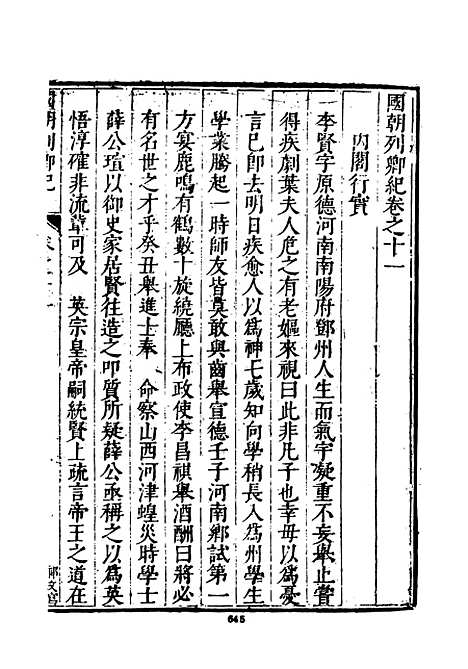 國朝列卿紀卷之十一
內閣行實
李賢字原德河南南陽府鄧州人生而氣宇凝重不妄舉止嘗
得疾劇葉夫人危之有老嫗來視曰此非凡子也幸毋以爲憂
言已卽去明日疾愈人以爲神七歲知向學稍長入爲州學生
學業勝起一時師友皆莫敢與齒舉宣德壬子河南鄉試第一
方宴鹿鳴有鶴數十旋繞廳上布政使李昌祺舉酒酬曰將必
有名世之才乎癸丑舉進士奉 命察山西河津蝗災時學士
薛公瑄以御史家居賢往造之叩質所疑薛公亟稱之以爲英
悟淳確非流輩可及 英宗皇帝嗣統賢上疏言帝王之道在
國朝列卿紀
卷之十一
645